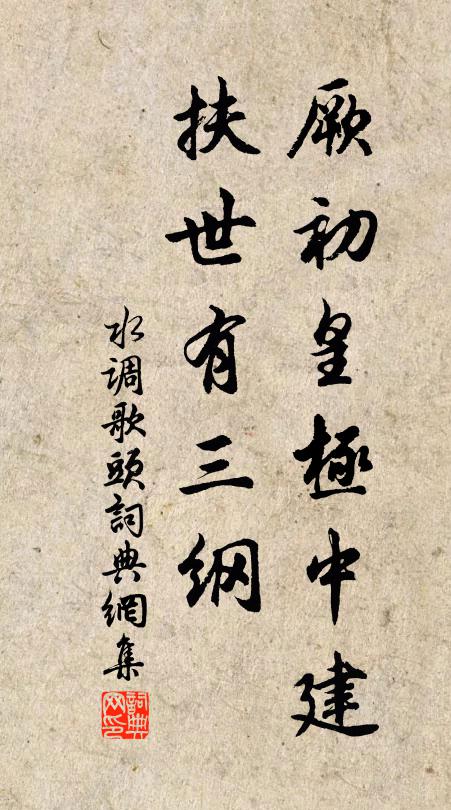 厥初皇極中建
扶世有三纲
水调歌頭詞典網集
詞典
网印